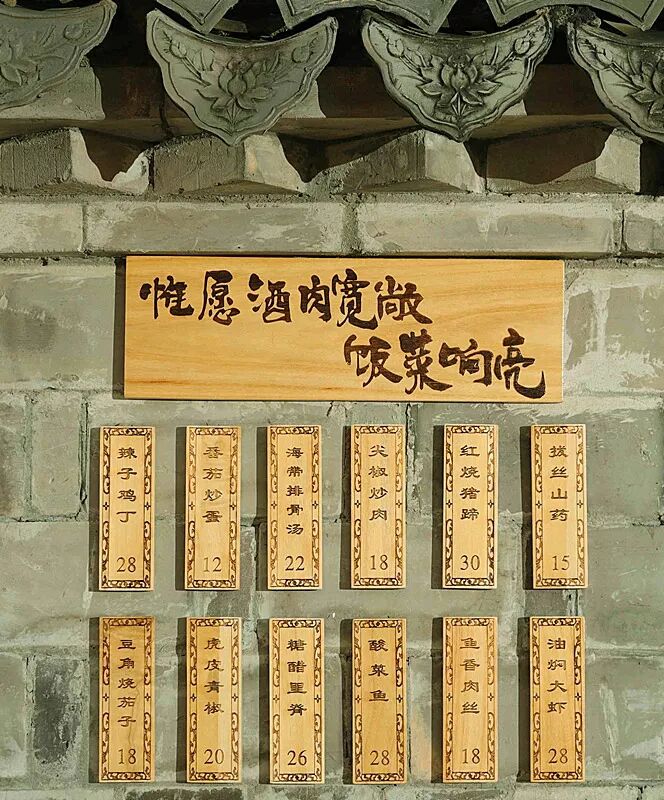 惟愿酒肉宽敞
饭菜响亮
辣子鸡丁
28
番茄炒蛋
12
海带排骨汤
22
尖椒炒肉
18
红烧猪蹄
30
拔丝山药
15
豆角烧茄子
18
虎皮青椒
20
糖醋里脊
26
酸菜鱼
28
鱼香肉丝
18
油焖大虾
28